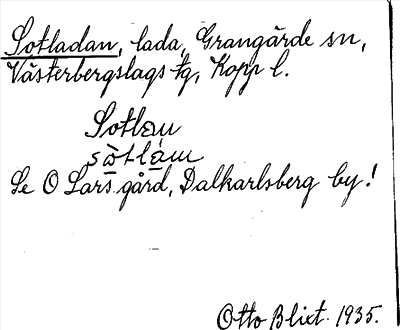 Sotladan, lada, Grangärde sn,
Västerbergslags tg, Kopp l.
Sotlan
sòtlàm
Se O Lars gård, Dalkarlsberg by!
Otto Blixt. 1935.